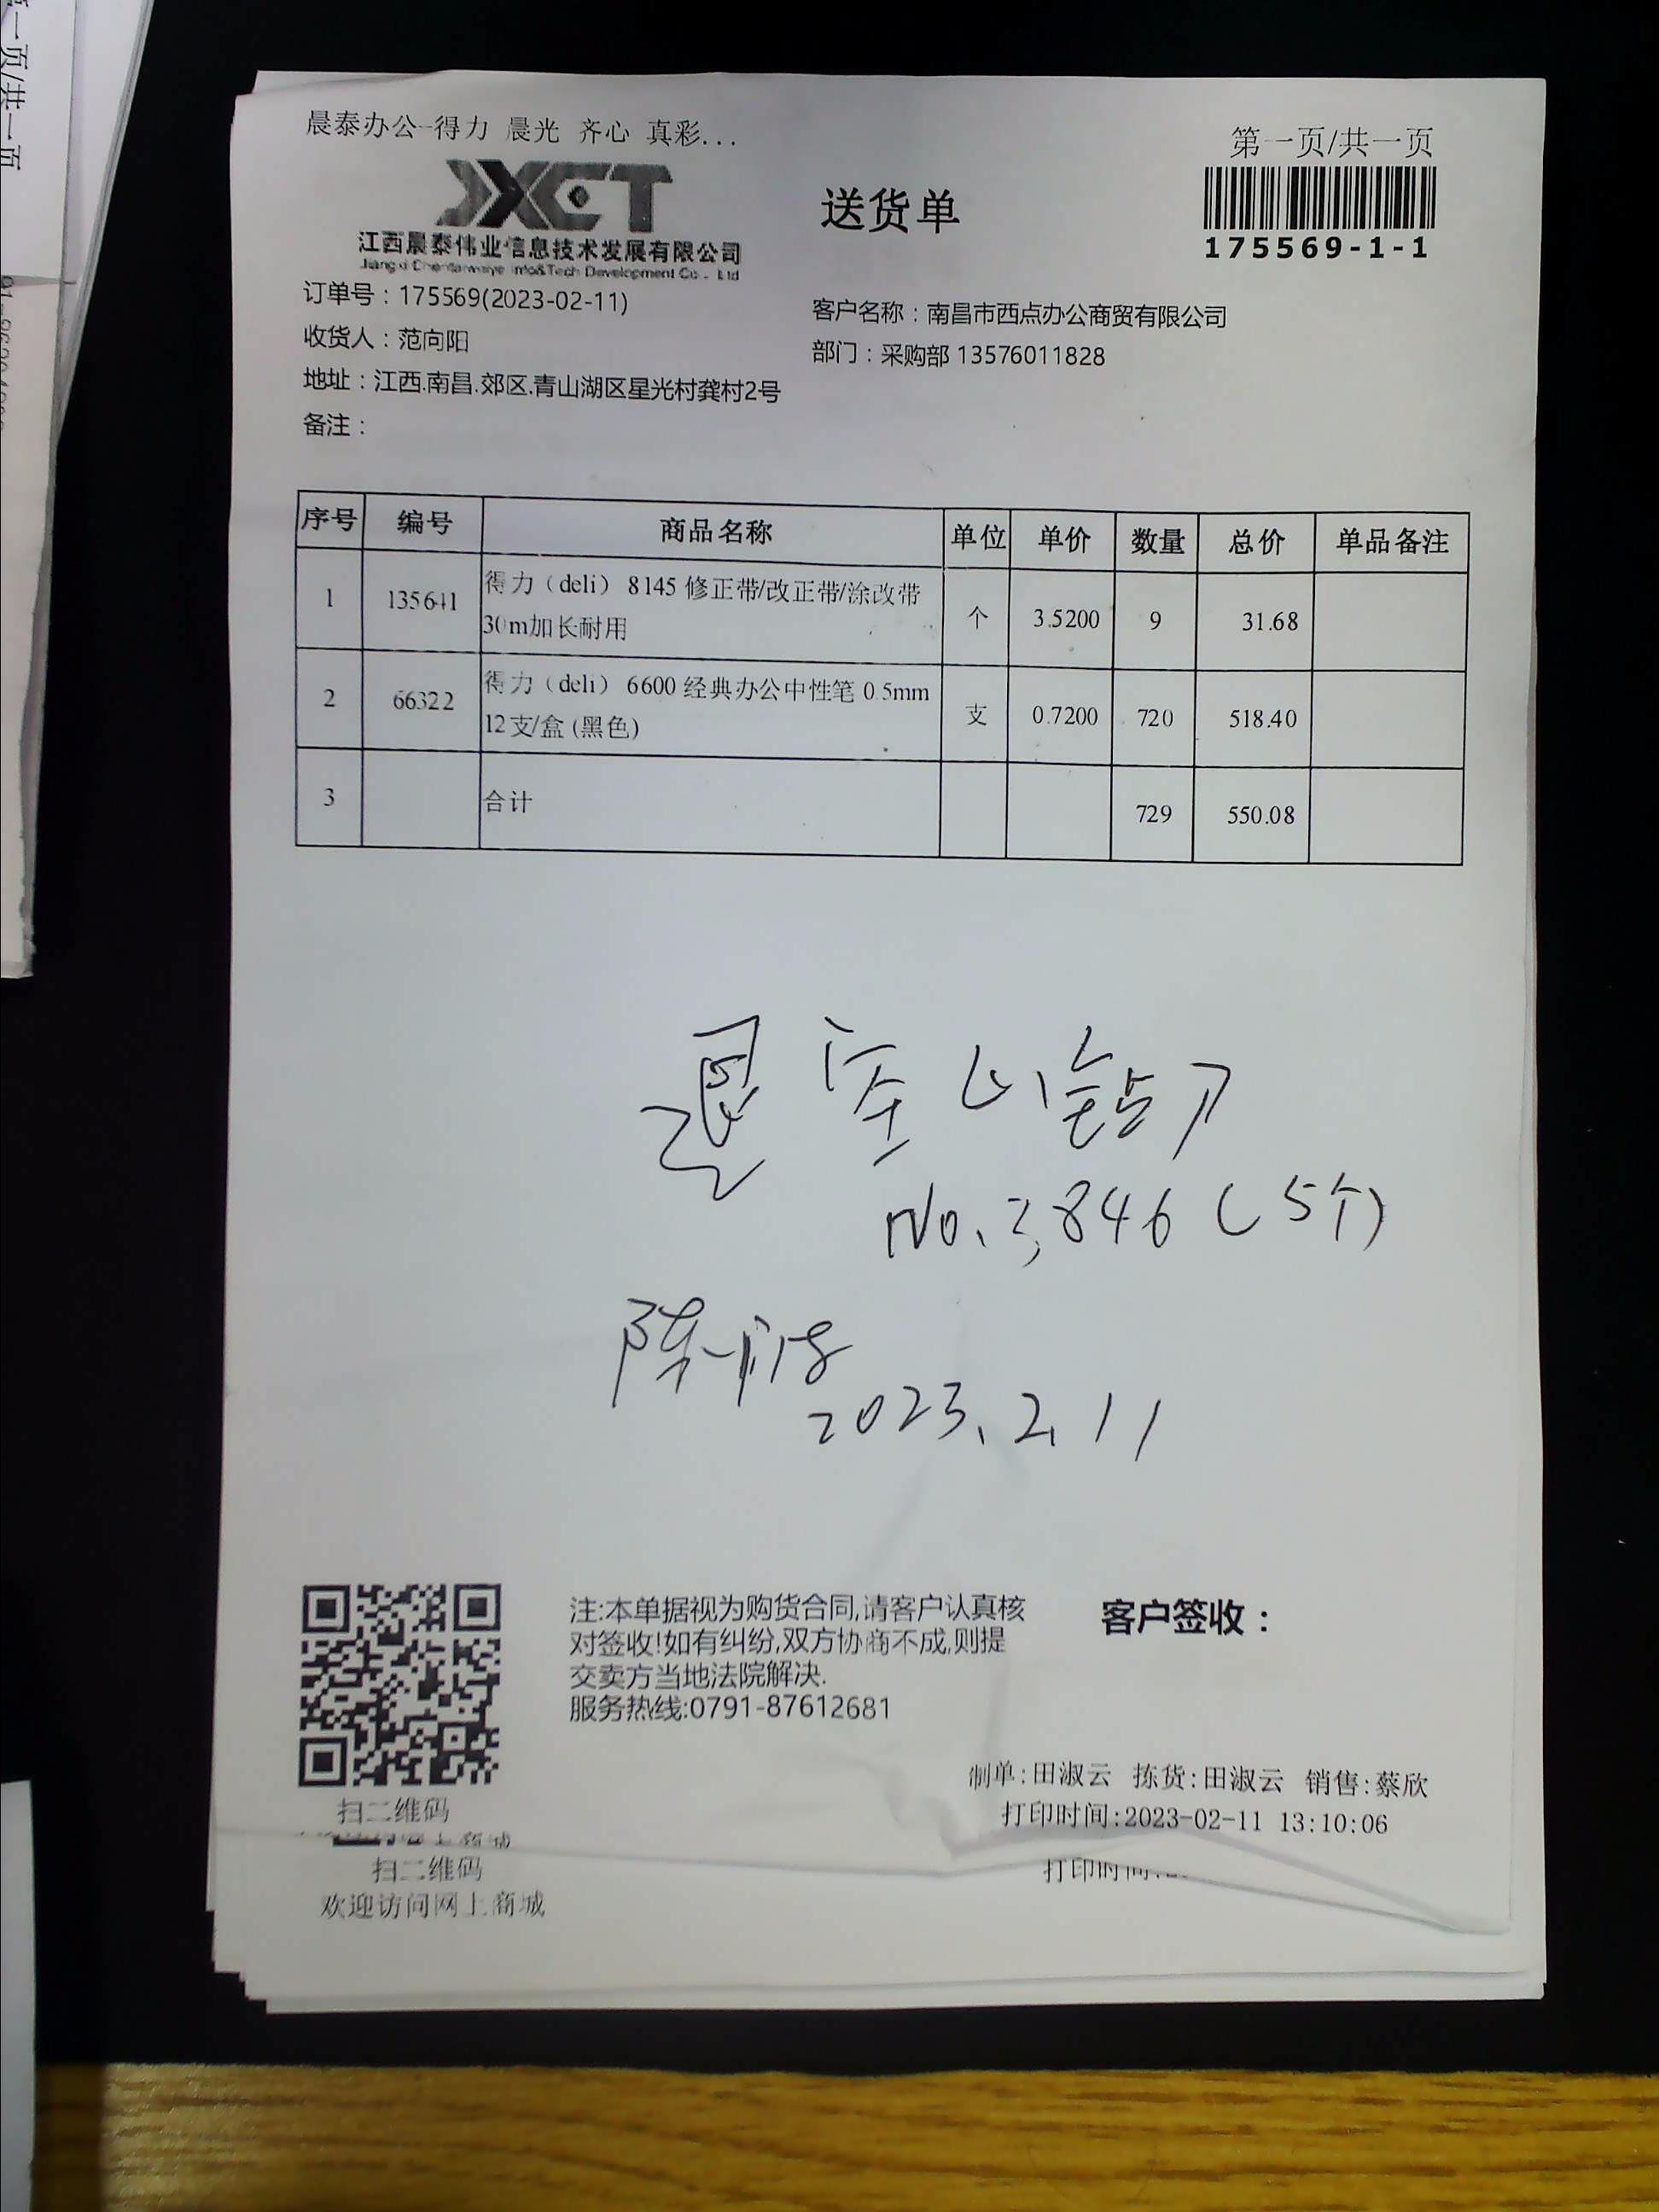 晨泰办公-得力 晨光 齐心 真彩...
第一页/共一页
JXCT
送货单
175569-1-1
江西晨泰伟业信息技术发展有限公司
订单号：175569(2023-02-11)
客户名称：南昌市西点办公商贸有限公司
收货人：范向阳
部门：采购部 13576011828
地址：江西.南昌.郊区.青山湖区星光村龚村2号
备注：
序号 编号 商品名称 单位 单价 数量 总价 单品备注
1 135641 得力（deli） 8145 修正带/改正带/涂改带 个 3.5200 9 31.68
30m加长耐用
2 66322 得力（deli） 6600 经典办公中性笔 0.5mm 支 0.7200 720 518.40
12支/盒 (黑色)
3 合计 729 550.08
退
No.3846（5个）
陈
2023.2.11
注:本单据视为购货合同,请客户认真核
对签收!如有纠纷,双方协商不成,则提
交卖方当地法院解决.
服务热线:0791-87612681
客户签收：
制单:田淑云 拣货:田淑云 销售:蔡欣
打印时间:2023-02-11 13:10:06
扫二维码
扫二维码
欢迎访问网上商城
打印时间:
第一页/共一页